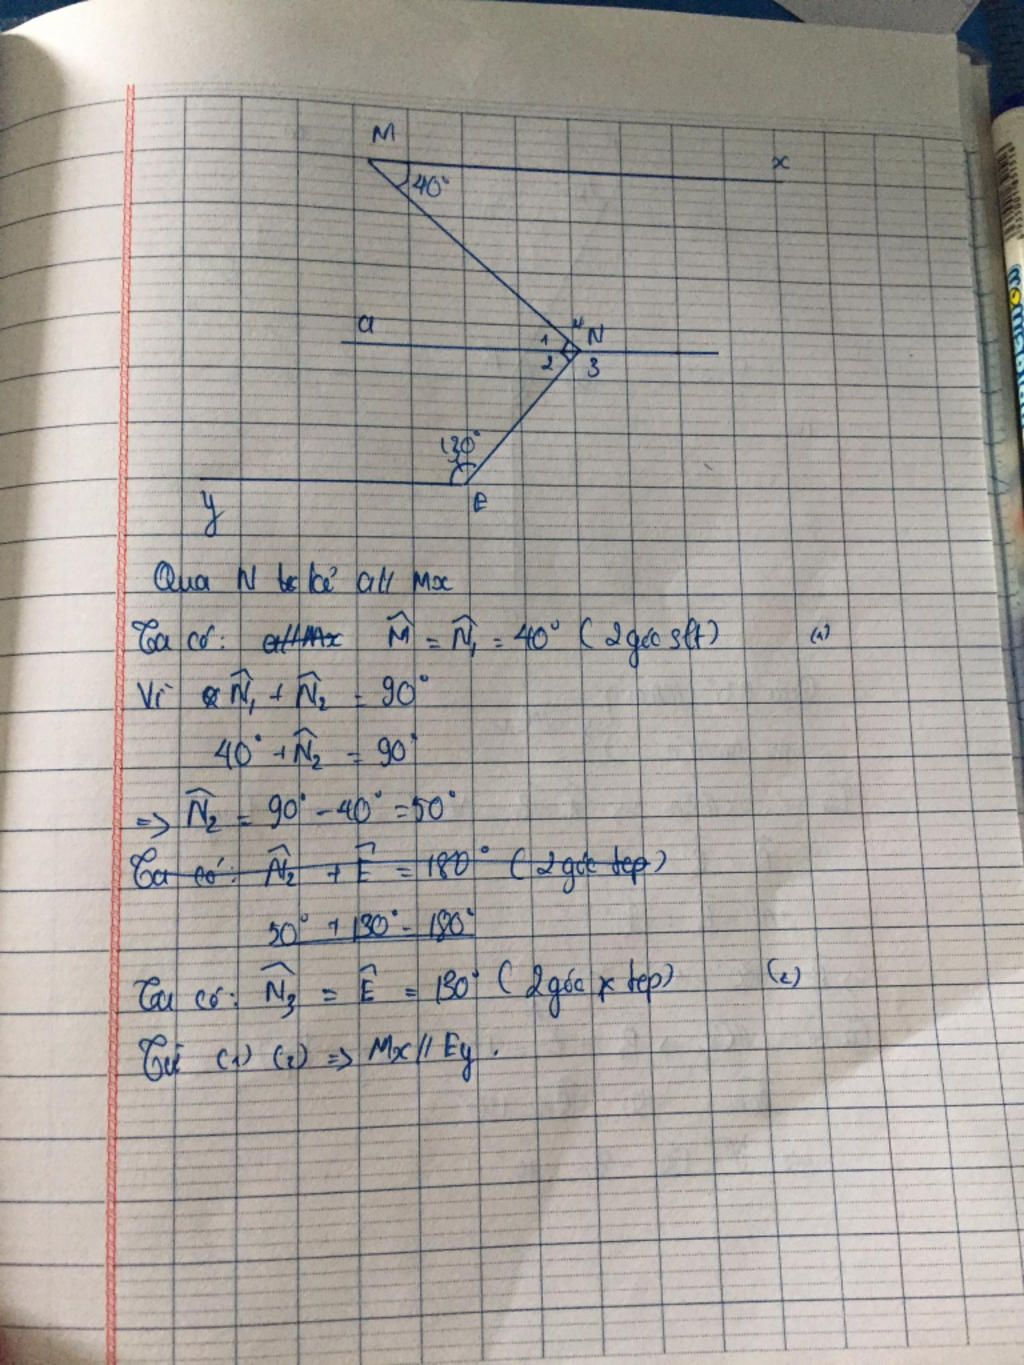 M
x
40°
a
1
4
N
2
3
130°
y
E
Qua N kẻ a // Mx
Ta có: a//Mx M̂ = N̂₁ = 40° (2 góc slt) (1)
Vì N̂₁ + N̂₂ = 90°
40° + N̂₂ = 90°
=> N̂₂ = 90° - 40° = 50°
Ta có: N̂₂ + Ê = 180° (2 góc tcp)
50° + 130° = 180°
Ta có: N̂₃ = Ê = 130° (2 góc tcp) (2)
Từ (1) (2) => Mx // Ey.